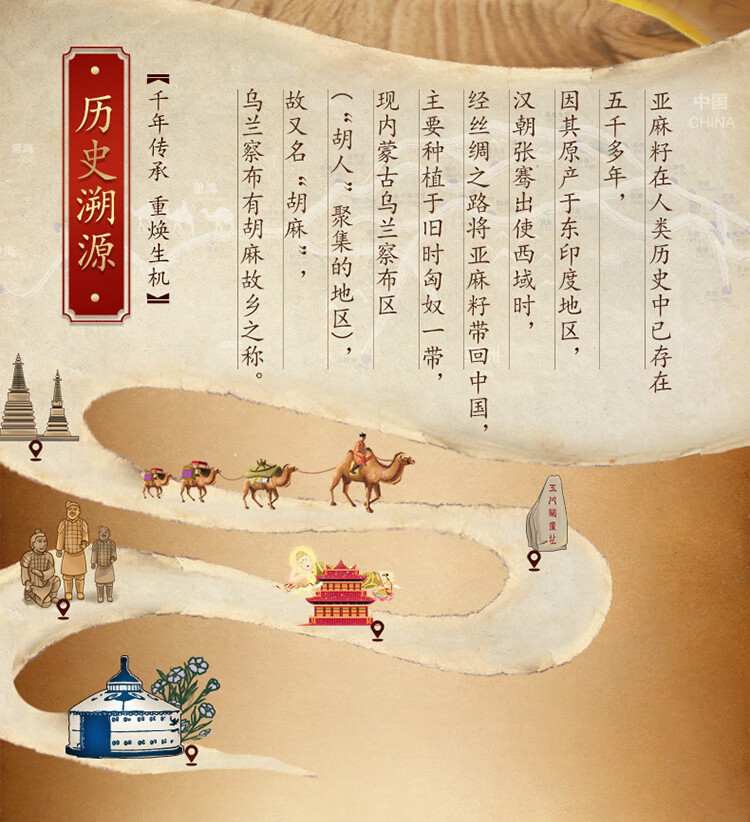 历史溯源
【千年传承 重焕生机】
亚麻籽在人类历史中已存在
五千多年，
因其原产于东印度地区，
汉朝张骞出使西域时，
经丝绸之路将亚麻籽带回中国，
主要种植于旧时匈奴一带，
现内蒙古乌兰察布区
（“胡人”聚集的地区），
故又名“胡麻”，
乌兰察布有胡麻故乡之称。
中国
CHINA
里海
黑海
玉门关遗址